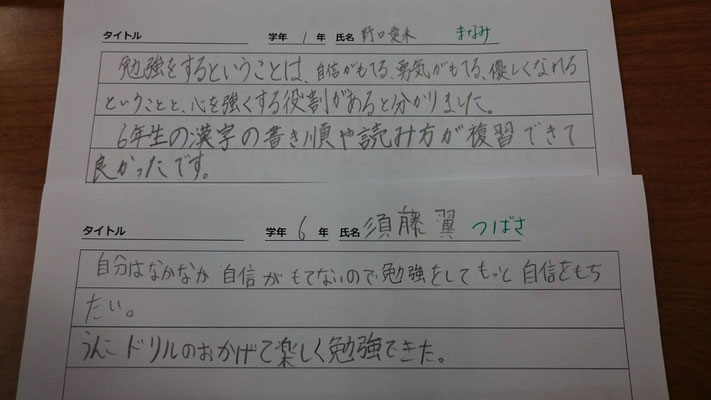 タイトル 学年 1 年 氏名 野口愛未 まなみ
勉強をするということは、自信がもてる、勇気がもてる、優しくなれる
ということと、心を強くする役割があると分かりました。
6年生の漢字の書き順や読み方が複習できて
良かったです。
タイトル 学年 6 年 氏名 須藤翼 つばさ
自分はなかなか自信がもてないので勉強をしてもっと自信をもち
たい。
うんこドリルのおかげで楽しく勉強できた。